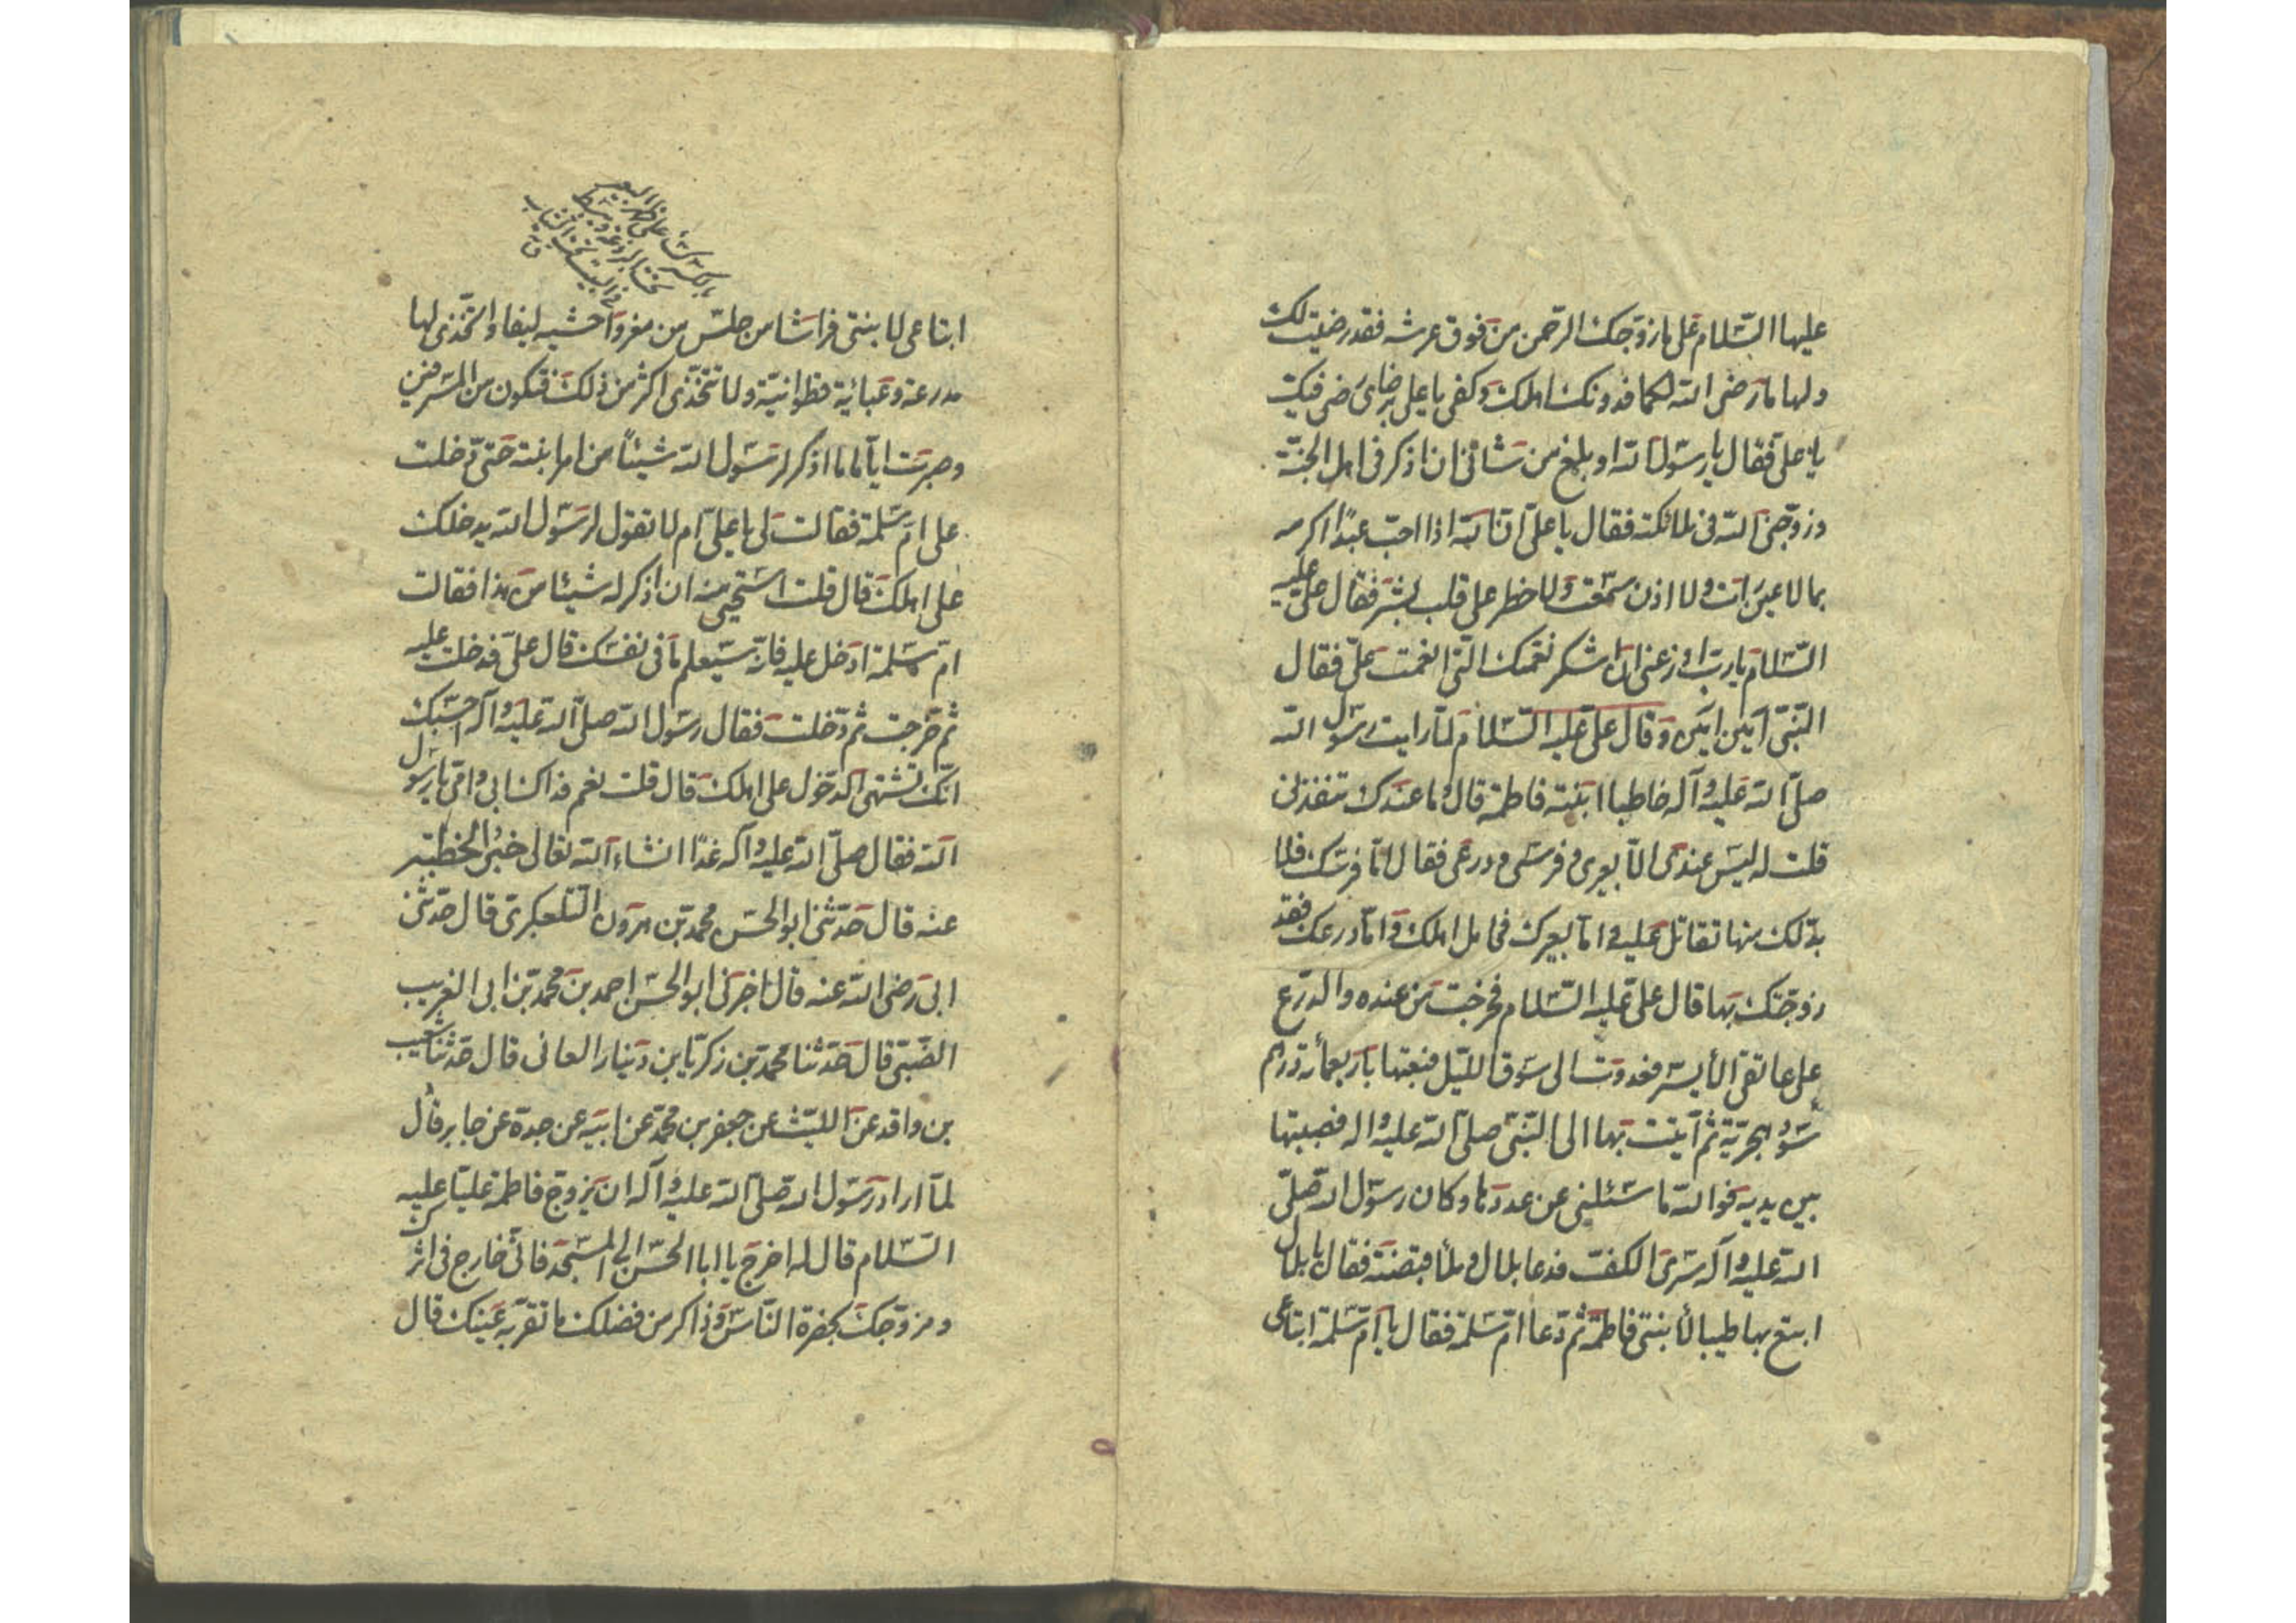 عليها السّلام على ما زوّجك الرّحمن من فوق عرشه فقد رضيت لك
ولها ما رضى الله لكما فدونك اهلك وكفى يا على برضاى رضى فيك
يا على فقال يا رسول الله او بلغ من شانى ان اذكر فى اهل الجنّة
وزوّجنى الله فى ملائكته فقال يا علىّ انّ الله اذا احبّ عبدًا اكرمه
بما لا عين رات ولا اذن سمعت ولا خطر على قلب بشر فقال علىّ عليه
السّلام يا ربّ اوزعنى ان اشكر نعمتك الّتى انعمت علىّ فقال
النّبىّ آمين امين وقال علىّ عليه السّلام لمّا رايت رسول الله
صلّى الله عليه وآله خاطبا ابنته فاطمة قال وما عندك تنفذنى
قلت له ليس عندى الّا بعيرى وفرسى ودرعى فقال امّا فرسك فلا
بدّ لك منها تقاتل عليه وامّا بعيرك فحامل اهلك وامّا درعك فقد
زوّجتك بها قال على عليه السّلام فخرجت من عنده والدّرع
على عاتقى الأيسر فغدوت الى سوق اللّيل فبعتها باربعمأئة درهم
سود هجريّة ثمّ اتيت بها الى النّبىّ صلّى الله عليه واله فصببتها
بين يديه فوالله ما سئلنى عن عددها وكان رسول الله صلّى
الله عليه وآله سرىّ الكفّ فدعا بلال وملأ قبضته فقال يا بلال
ابتع بها طيبا لأبنتى فاطمة ثمّ دعا امّ سلمة فقال يا امّ سلمة ابتاعى
ابتاعى لابنتى فراشا من حلس من مغزوا حشيه ليفا واتّخذى لها
مدرعة وعبائية قطوانيّة ولا تتّخذى اكثر من ذلك فتكون من المسرفين
وصبرت ايّاما ما اذكر لرسول الله شيئاً من امر ابنته حتّى دخلت
على امّ سلمة فقالت لى يا علىّ لم لا تقول لرسول الله يدخلك
على اهلك قال قلت استحيى منه ان اذكر له شيئا من هذا فقالت
امّ سلمة ادخل عليه فانّه سيعلم ما فى نفسك قال علىّ فدخلت عليه
ثمّ خرجت ثمّ دخلت فقال رسول الله صلّى الله عليه وآله احسبك
انّك تشتهى الدّخول على اهلك قال قلت نعم فداك ابى وامّى يا رسول
الله فقال صلّى الله عليه وآله غدًا انشاء الله تعالى خبر الخطبة
عنه قال حدّثنى ابو الحسن محمد بن هرون التّلعكبرىّ قال حدّثنى
ابى رضى الله عنه قال اخبرنى ابو الحسن احمد بن محمد بن ابى الغريب
الضّبىّ قال حدّثنا محمد بن زكريّا بن دينار العانى قال حدّثنا شعيب
بن واقد عن اللّيث عن جعفر بن محمّد عن ابيه عن جده عن جابر قال
لمّا اراد رسول الله صلّى الله عليه وآله ان يزوّج فاطمة عليّا عليه
السّلام قال له اخرج يا ابا الحسن الى المسجد فانّى خارج فى اثرك
ومزوّجك بحضرة النّاس وذاكر من فضلك ما تقرّ به عينك قال